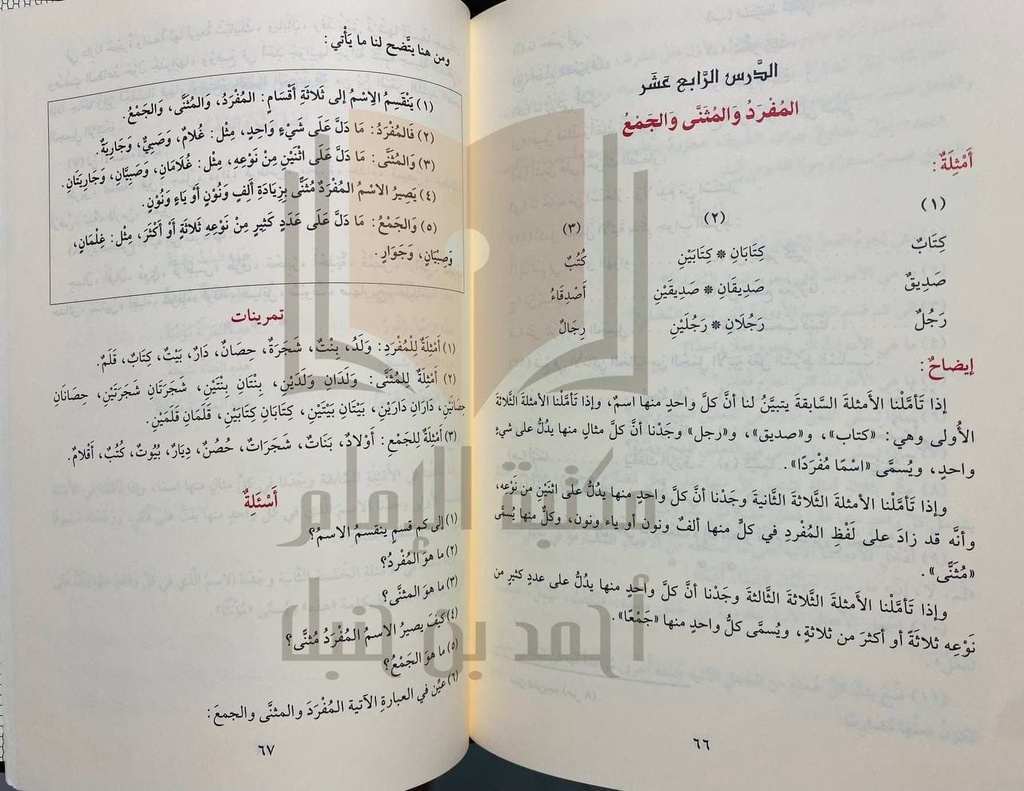 الدَّرس الرَّابع عَشَر
المُفْرَدُ وَالمُثَنَّى وَالجَمْعُ
أَمْثِلَةٌ:
(١) (٢) (٣)
كِتَابٌ كِتَابَانِ * كِتَابَيْنِ كُتُبٌ
صَدِيقٌ صَدِيقَانِ * صَدِيقَيْنِ أَصْدِقَاءُ
رَجُلٌ رَجُلَانِ * رَجُلَيْنِ رِجَالٌ
إيضاحٌ:
إذا تَأمَّلْنا الأمثلةَ السَّابقةَ يتبيَّنُ لنا أنَّ كلَّ واحدٍ منها اسمٌ، وإذا تأمَّلْنا الأمثلةَ الثَّلاثةَ
الأُولى وهي: «كتاب»، و«صديق»، و«رجل» وَجَدْنا أنَّ كلَّ مثالٍ منها يدُلُّ على شيءٍ
واحدٍ، ويُسمَّى «اسْمًا مُفْرَدًا».
وإذا تَأمَّلْنا الأمثلةَ الثَّلاثةَ الثَّانيةَ وجَدْنا أنَّ كلَّ واحدٍ منها يدُلُّ على اثنَيْنِ من نَوْعِه،
وأنَّه قد زادَ على لَفْظِ المُفْردِ في كلٍّ منها ألفٌ ونون أو ياء ونون، وكلٌّ منها يُسمَّى
«مُثَنًّى».
وإذا تَأمَّلْنا الأمثلةَ الثَّلاثةَ الثَّالثةَ وجَدْنا أنَّ كلَّ واحدٍ منها يدُلُّ على عددٍ كثيرٍ من
نَوْعِه ثلاثةً أو أكثرَ من ثلاثةٍ، ويُسمَّى كلُّ واحدٍ منها «جَمْعًا».
٦٦
ومن هنا يتَّضح لنا ما يَأْتي:
(١) يَنْقَسِمُ الِاسْمُ إلى ثَلَاثَةِ أَقْسَامٍ: المُفْرَدُ، وَالمُثَنَّى، وَالجَمْعُ.
(٢) فَالمُفْرَدُ: مَا دَلَّ عَلَى شَيْءٍ وَاحِدٍ، مِثْل: غُلَامٌ، وَصَبِيٌّ، وَجَارِيَةٌ.
(٣) وَالمُثَنَّى: مَا دَلَّ عَلَى اثْنَيْنِ مِنْ نَوْعِهِ، مِثْل: غُلَامَانِ، وَصَبِيَّانِ، وَجَارِيَتَانِ.
(٤) يَصِيرُ الِاسْمُ المُفْرَدُ مُثَنًّى بِزِيَادَةِ أَلِفٍ وَنُوْنٍ أَوْ يَاءٍ وَنُوْنٍ.
(٥) وَالجَمْعُ: مَا دَلَّ عَلَى عَدَدٍ كَثِيرٍ مِنْ نَوْعِهِ ثَلَاثَةً أَوْ أَكْثَرَ، مِثْل: غِلْمَانٍ،
وَصِبيَانٍ، وَجَوَارٍ.
تمرينات
(١) أَمْثِلَةٌ لِلْمُفْرَدِ: وَلَدٌ، بِنْتٌ، شَجَرَةٌ، حِصَانٌ، دَارٌ، بَيْتٌ، كِتَابٌ، قَلَمٌ.
(٢) أَمْثِلَةٌ لِلمُثَنَّى: وَلَدَانِ وَلَدَيْنِ، بِنْتَانِ بِنْتَيْنِ، شَجَرَتَانِ شَجَرَتَيْنِ، حِصَانَانِ
حِصَانَيْنِ، دَارَانِ دَارَيْنِ، بَيْتَانِ بَيْتَيْنِ، كِتَابَانِ كِتَابَيْنِ، قَلَمَانِ قَلَمَيْنِ.
(٣) أَمْثِلَةٌ لِلْجَمْعِ: أَوْلَادٌ، بَنَاتٌ، شَجَرَاتٌ، حُصُنٌ، دِيَارٌ، بُيُوتٌ، كُتُبٌ، أَقْلَامٌ.
أَسْئِلَةٌ
(١) إلى كم قسمٍ ينقسمُ الاسم؟
(٢) ما هو المُفْرَدُ؟
(٣) ما هو المثنَّى؟
(٤) كيفَ يصيرُ الاسمُ المُفْرَدُ مُثنًّى؟
(٥) ما هو الجَمْعُ؟
(٦) عيِّن في العبارةِ الآتية المُفْرَدَ والمثنَّى والجمعَ:
٦٧
مكتبة الإمام
أحمد بن حنبل